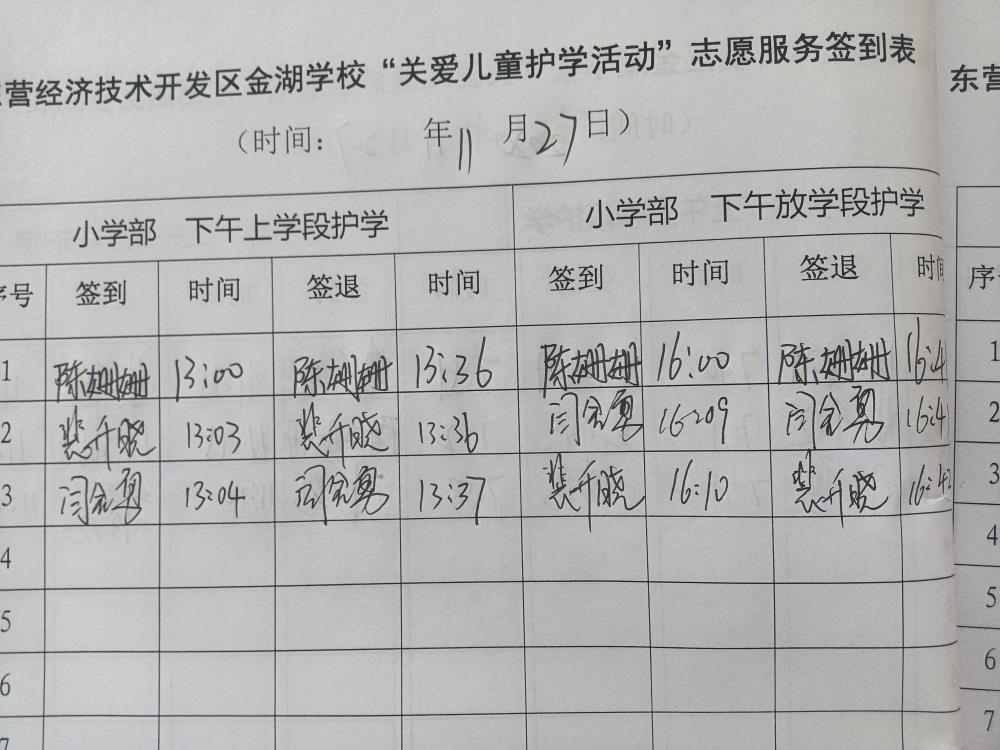 营经济技术开发区金湖学校“关爱儿童护学活动”志愿服务签到表
（时间： 年11月27日）
小学部 下午上学段护学 小学部 下午放学段护学
序号 签到 时间 签退 时间 签到 时间 签退 时间
1 陈姗姗 13:00 陈姗姗 13:36 陈姗姗 16:00 陈姗姗 16:4
2 裴千晓 13:03 裴千晓 13:36 闫金勇 16:09 闫金勇 16:4
3 闫金勇 13:04 闫金勇 13:37 裴千晓 16:10 裴千晓 16:4
4
5
6
7
东营
序
1
2
3
4
5
6
7